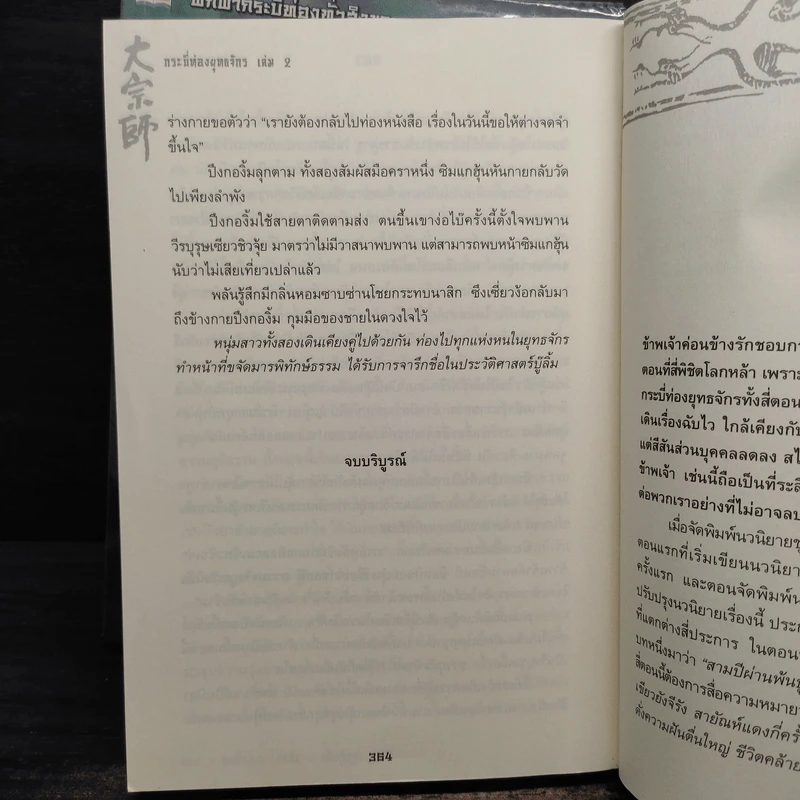 大宗師
กระบี่ท่องยุทธจักร เล่ม 2
ร่างกายขอตัวว่า “เรายังต้องกลับไปท่องหนังสือ เรื่องในวันนี้ขอให้ต่างจดจำ
ขึ้นใจ”
ปึงกองงิ้มลุกตาม ทั้งสองสัมผัสมือคราหนึ่ง ซิมแกฮุ้นหันกายกลับวัด
ไปเพียงลำพัง
ปึงกองงิ้มใช้สายตาติดตามส่ง ตนขึ้นเขาง่อไบ๊ครั้งนี้ตั้งใจพบพาน
วีรบุรุษเซียวชิวจุ้ย มาตรว่าไม่มีวาสนาพบพาน แต่สามารถพบหน้าซิมแกฮุ้น
นับว่าไม่เสียเที่ยวเปล่าแล้ว
พลันรู้สึกมีกลิ่นหอมซาบซ่านโชยกระทบนาสิก ซึงเซี่ยวง้อกลับมา
ถึงข้างกายปึงกองงิ้ม กุมมือของชายในดวงใจไว้
หนุ่มสาวทั้งสองเดินเคียงคู่ไปด้วยกัน ท่องไปทุกแห่งหนในยุทธจักร
ทำหน้าที่ขจัดมารพิทักษ์ธรรม ได้รับการจารึกชื่อในประวัติศาสตร์บู๊ลิ้ม
จบบริบูรณ์
364
ข้าพเจ้าค่อนข้างรักชอบกา
ตอนที่สี่พิชิตโลกหล้า เพราะ
กระบี่ท่องยุทธจักรทั้งสี่ตอน
เดินเรื่องฉับไว ใกล้เคียงกับ
แต่สีสันส่วนบุคคลลดลง
ข้าพเจ้า เช่นนี้ถือเป็นที่
ต่อพวกเราอย่างที่ไม่อาจลบ
เมื่อจัดพิมพ์นวนิยายชุ
ตอนแรกที่เริ่มเขียนนวนิยา
ครั้งแรก และตอนจัดพิมพ์
ปรับปรุงนวนิยายเรื่องนี้
ที่แตกต่างสี่ประการ ในตอน
บทหนึ่งมาว่า “สามปีผ่านพ้น
สี่ตอนนี้ต้องการสื่อความหมาย
เขียวยังจีรัง สายัณห์แดงกี่ครั้
ดั่งความฝันตื่นใหญ่ ชีวิตคล้าย